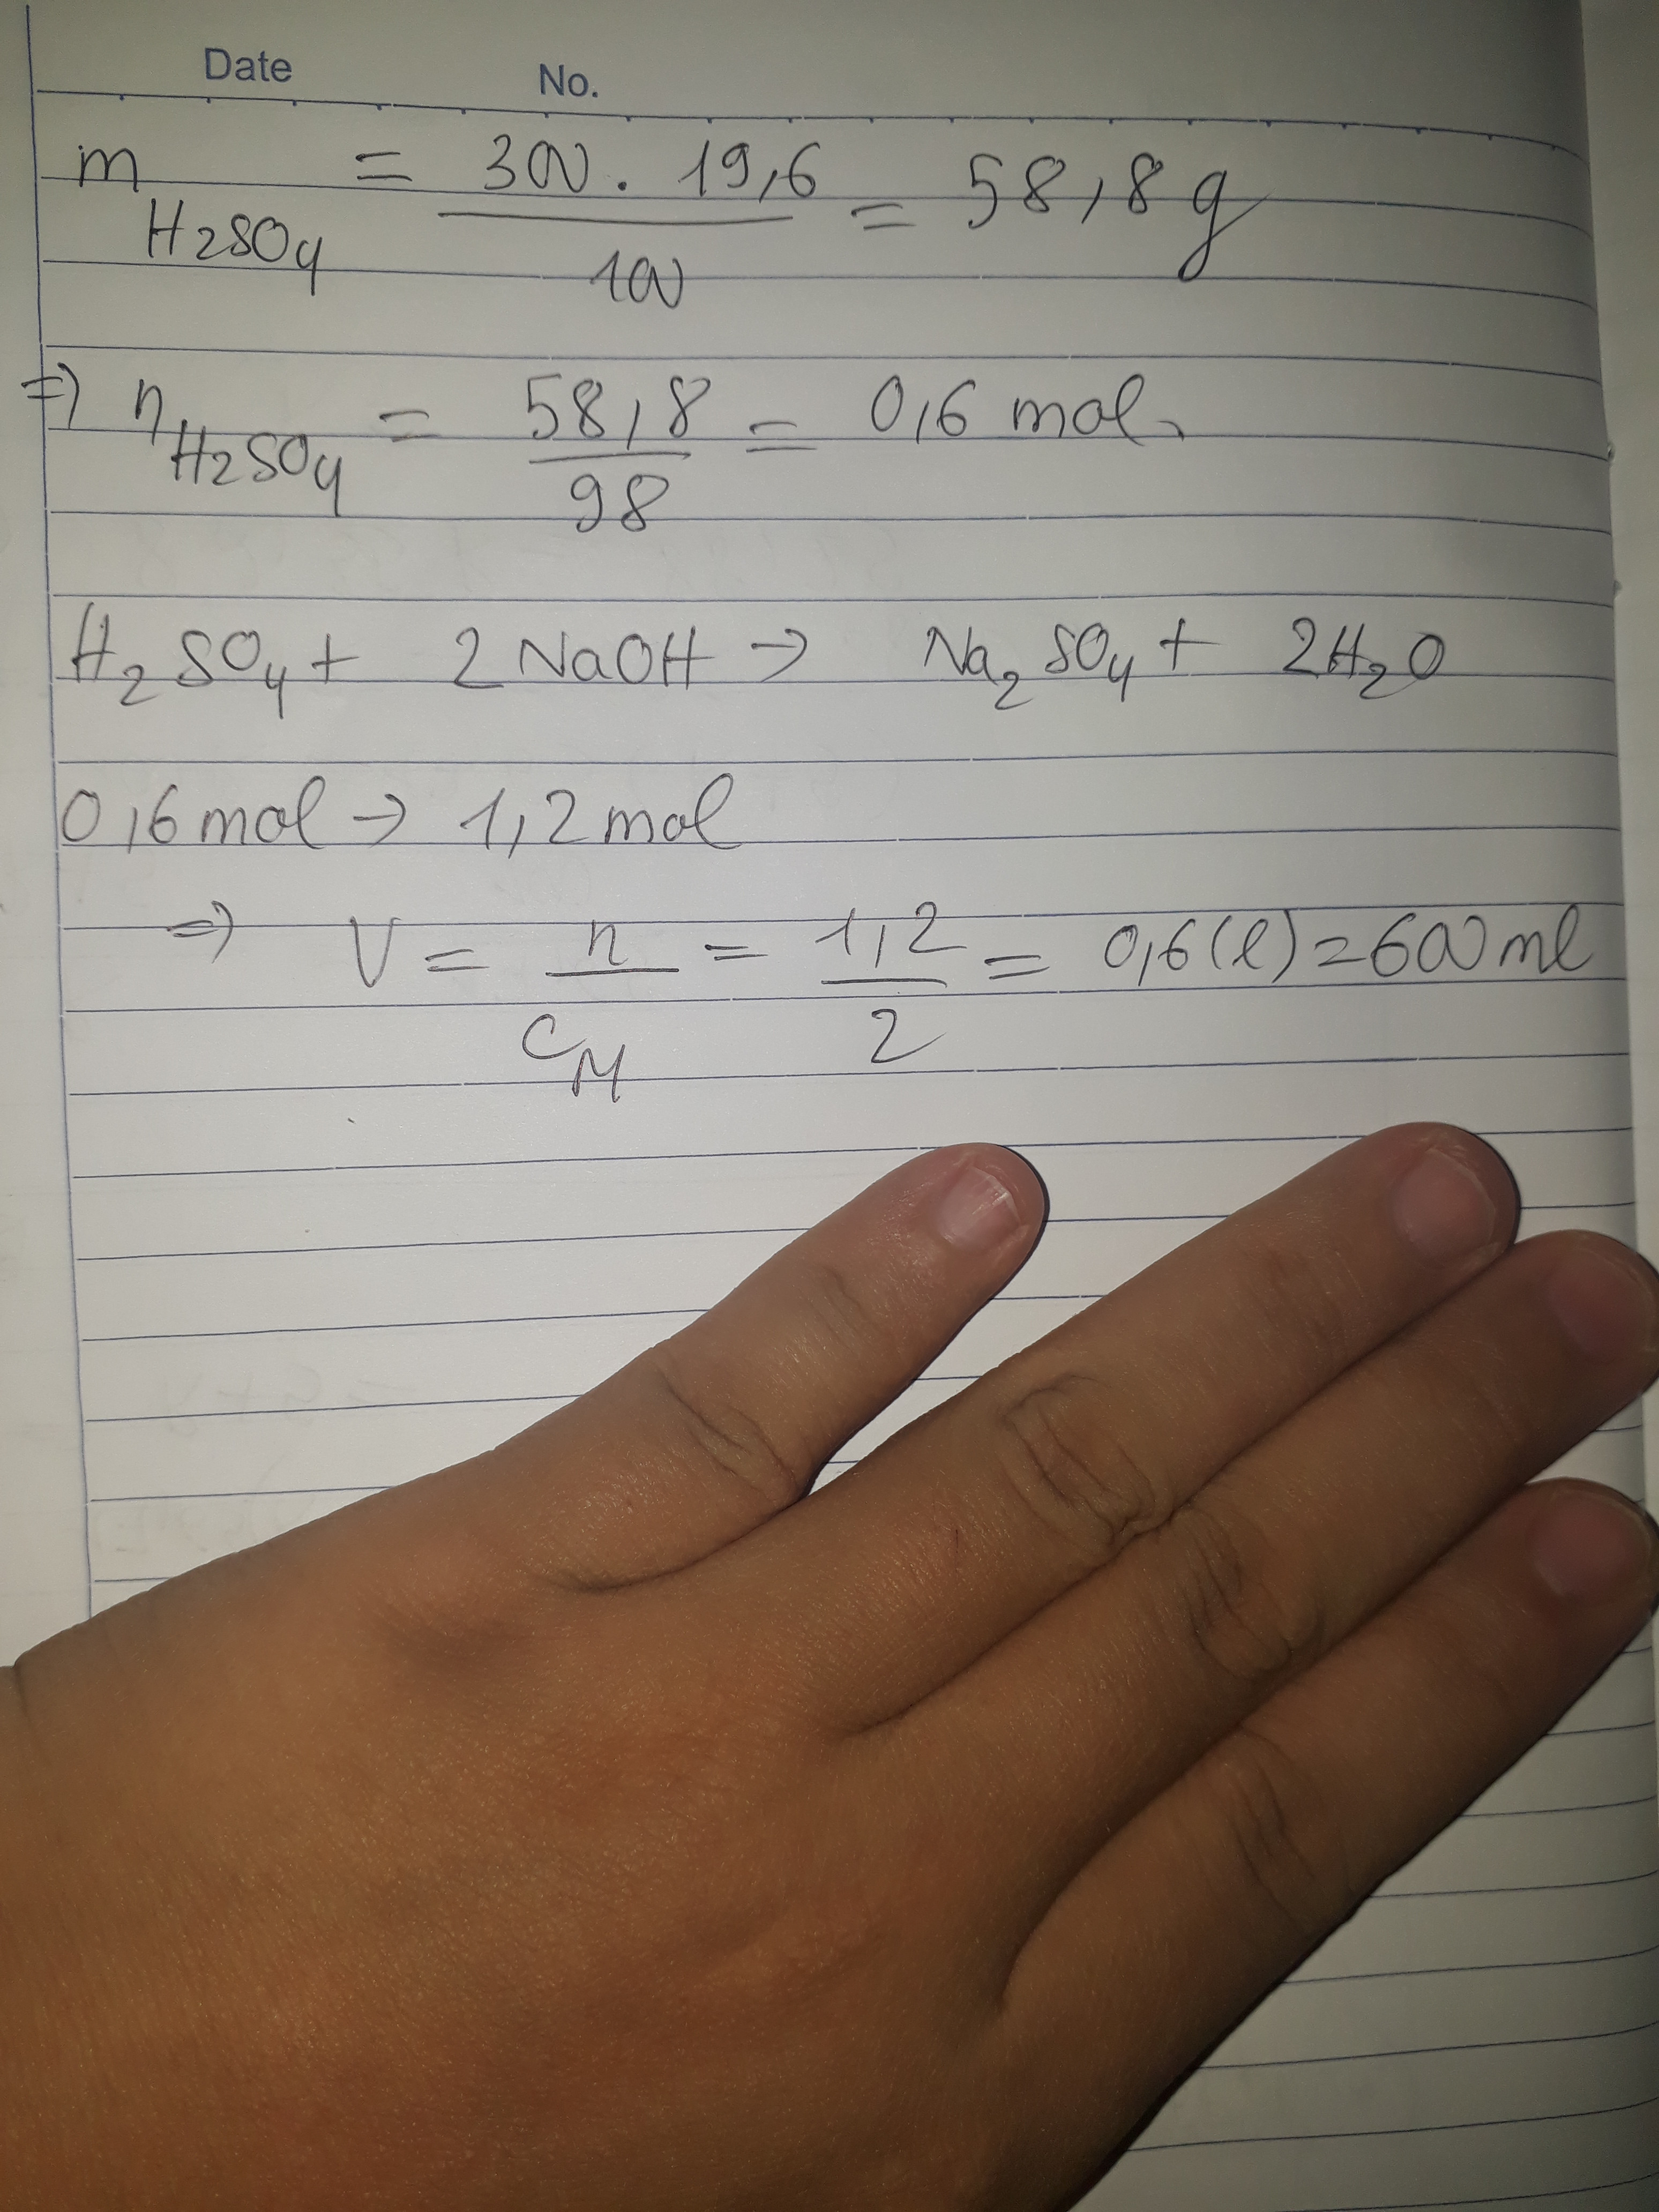 Date No.
m H2SO4 = 300 . 19,6 / 100 = 58,8 g
=> n H2SO4 = 58,8 / 98 = 0,6 mol.
H2SO4 + 2 NaOH → Na2SO4 + 2H2O
0,6 mol → 1,2 mol
=> V = n / CM = 1,2 / 2 = 0,6 (l) = 600 ml